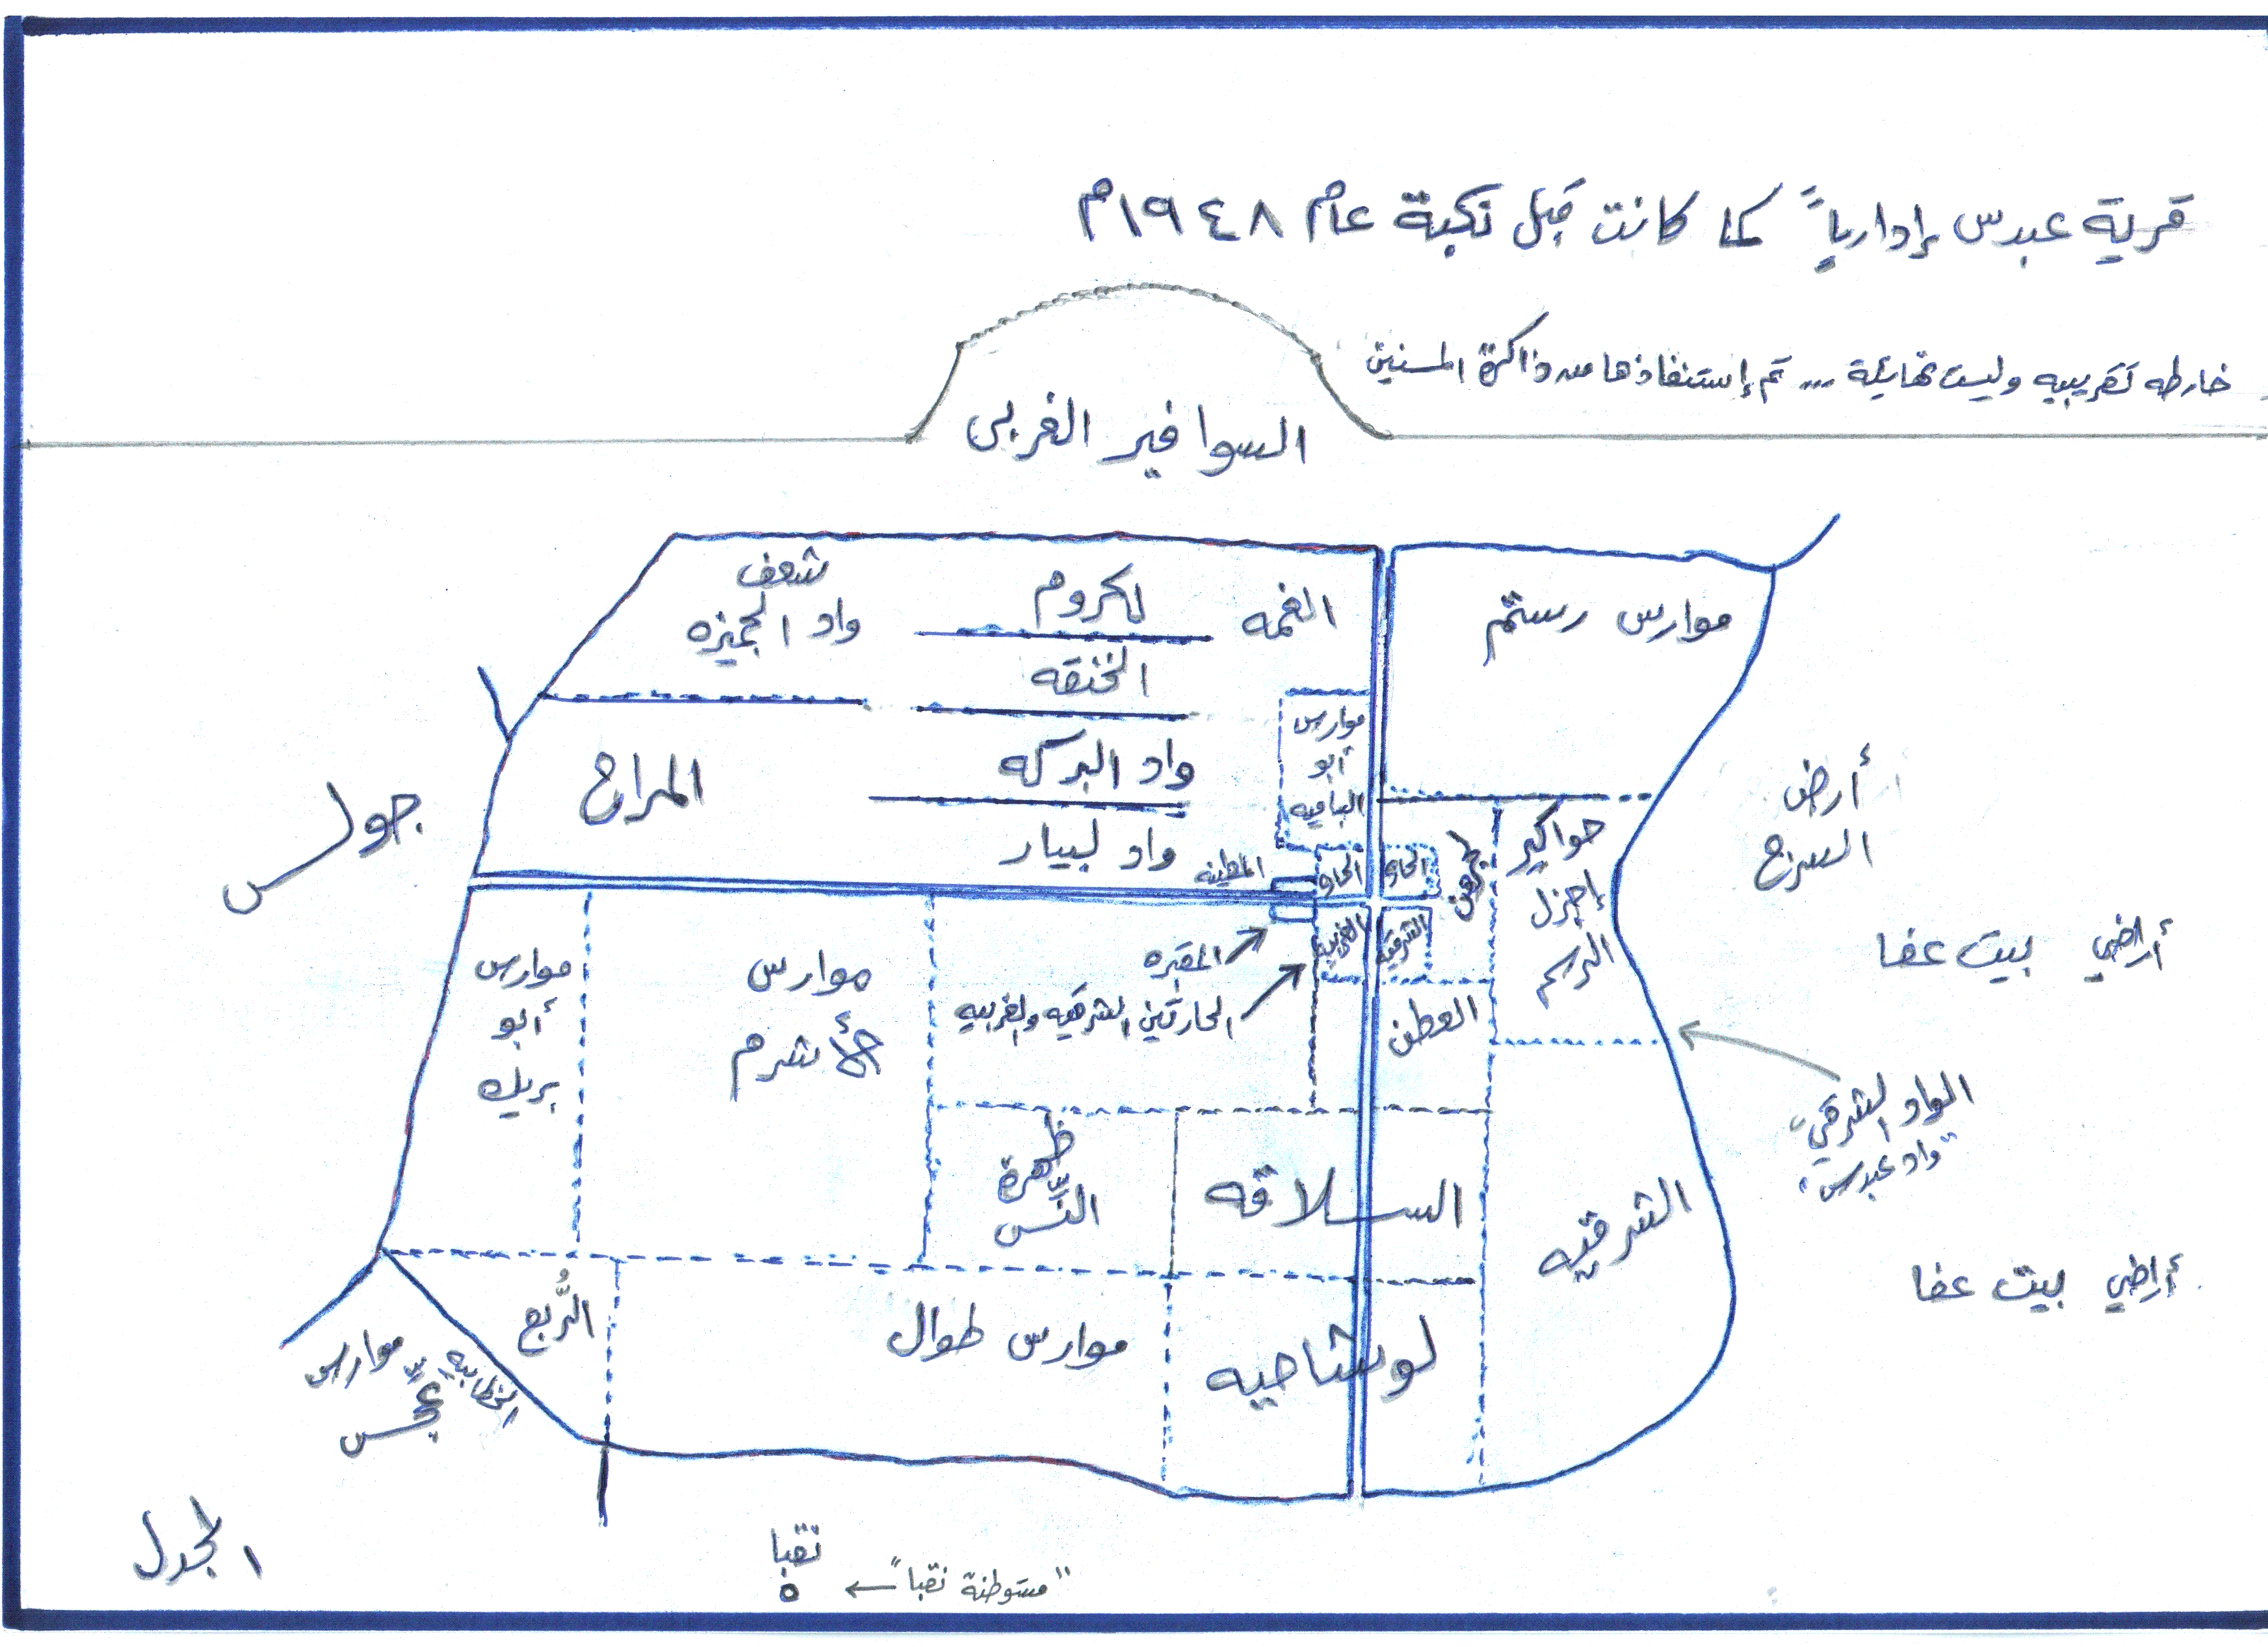 قرية عبدس إدارياً كما كانت قبل نكبة عام ١٩٤٨م
خارطه تقريبيه وليست نهائية ... تم إستنفاذها من ذاكرة المسنين
السوافير الغربي
موارس رستم
الغمه
لكروم
شعف
واد الجميزه
الخنقه
موارس
أبو
الباميه
واد البركه
المراح
واد لبيار
المطينه
حواكير
إجزل
الرسم
الجرن
الحاره
الحاره
الشرقيه
الغربيه
أرض
السرح
أراضي بيت عفا
جولس
المقبره
الحارتين الشرقيه والغربيه
العطن
موارس
الأشرم
موارس
أبو
بريك
الواد الشرقي
"واد عبدس"
ظهرة
النس
السلاقه
الشرقيه
أراضي بيت عفا
الرُبع
موارس طوال
لوشاحيه
موارس
عجس
المجدل
نقبا
"مستوطنة نقبا"